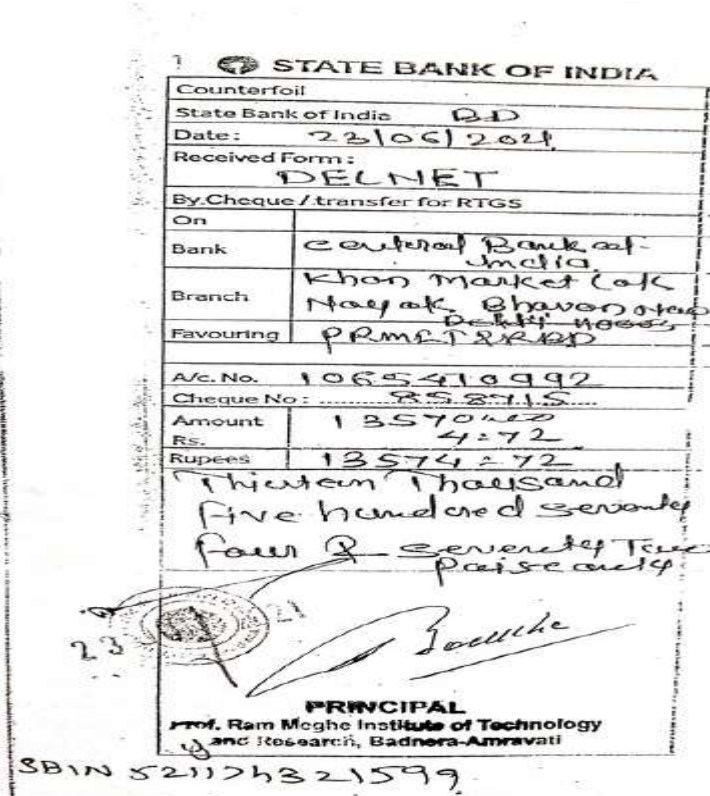 STATE BANK OF INDIA
Counterfoil
State Bank of India BD
Date: 23/06/2021
Received Form:
DELNET
By.Cheque / transfer for RTGS
On
Bank Central Bank of
India
Branch Khan Market Lok
Nayak Bhavan New
Delhi 110003
Favouring PRMIT&R BD
A/c. No. 1065410992
Cheque No: 858715
Amount
Rs. 13570=00
4=72
Rupees 13574=72
Thirteen Thousand
five hundred seventy
four & seventy Two
paise only
23 21
PRINCIPAL
Prof. Ram Meghe Institute of Technology
and Research, Badnera-Amravati
SBIN521174321599